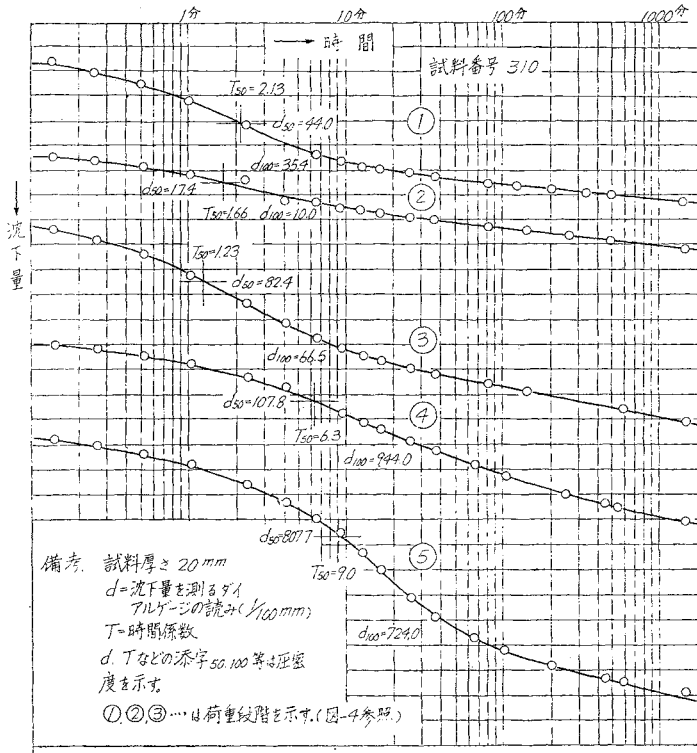 1分 10分 100分 1000分
→ 時間
試料番号 310
T50=2.13
d50=44.0
①
d100=35.4
d50=17.4
②
T50=1.66 d100=10.0
↓
沈下量
T50=1.23
d50=82.4
③
d100=66.5
d50=107.8
④
T50=6.3
d100=944.0
d50=807.7
⑤
T50=9.0
d100=729.0
備考. 試料厚さ 20mm
d=沈下量を測るダイ
アルゲージの読み(1/100mm)
T=時間係数
d. Tなどの添字50.100等は圧密
度を示す。
①,②,③…は荷重段階を示す.(図-4参照)